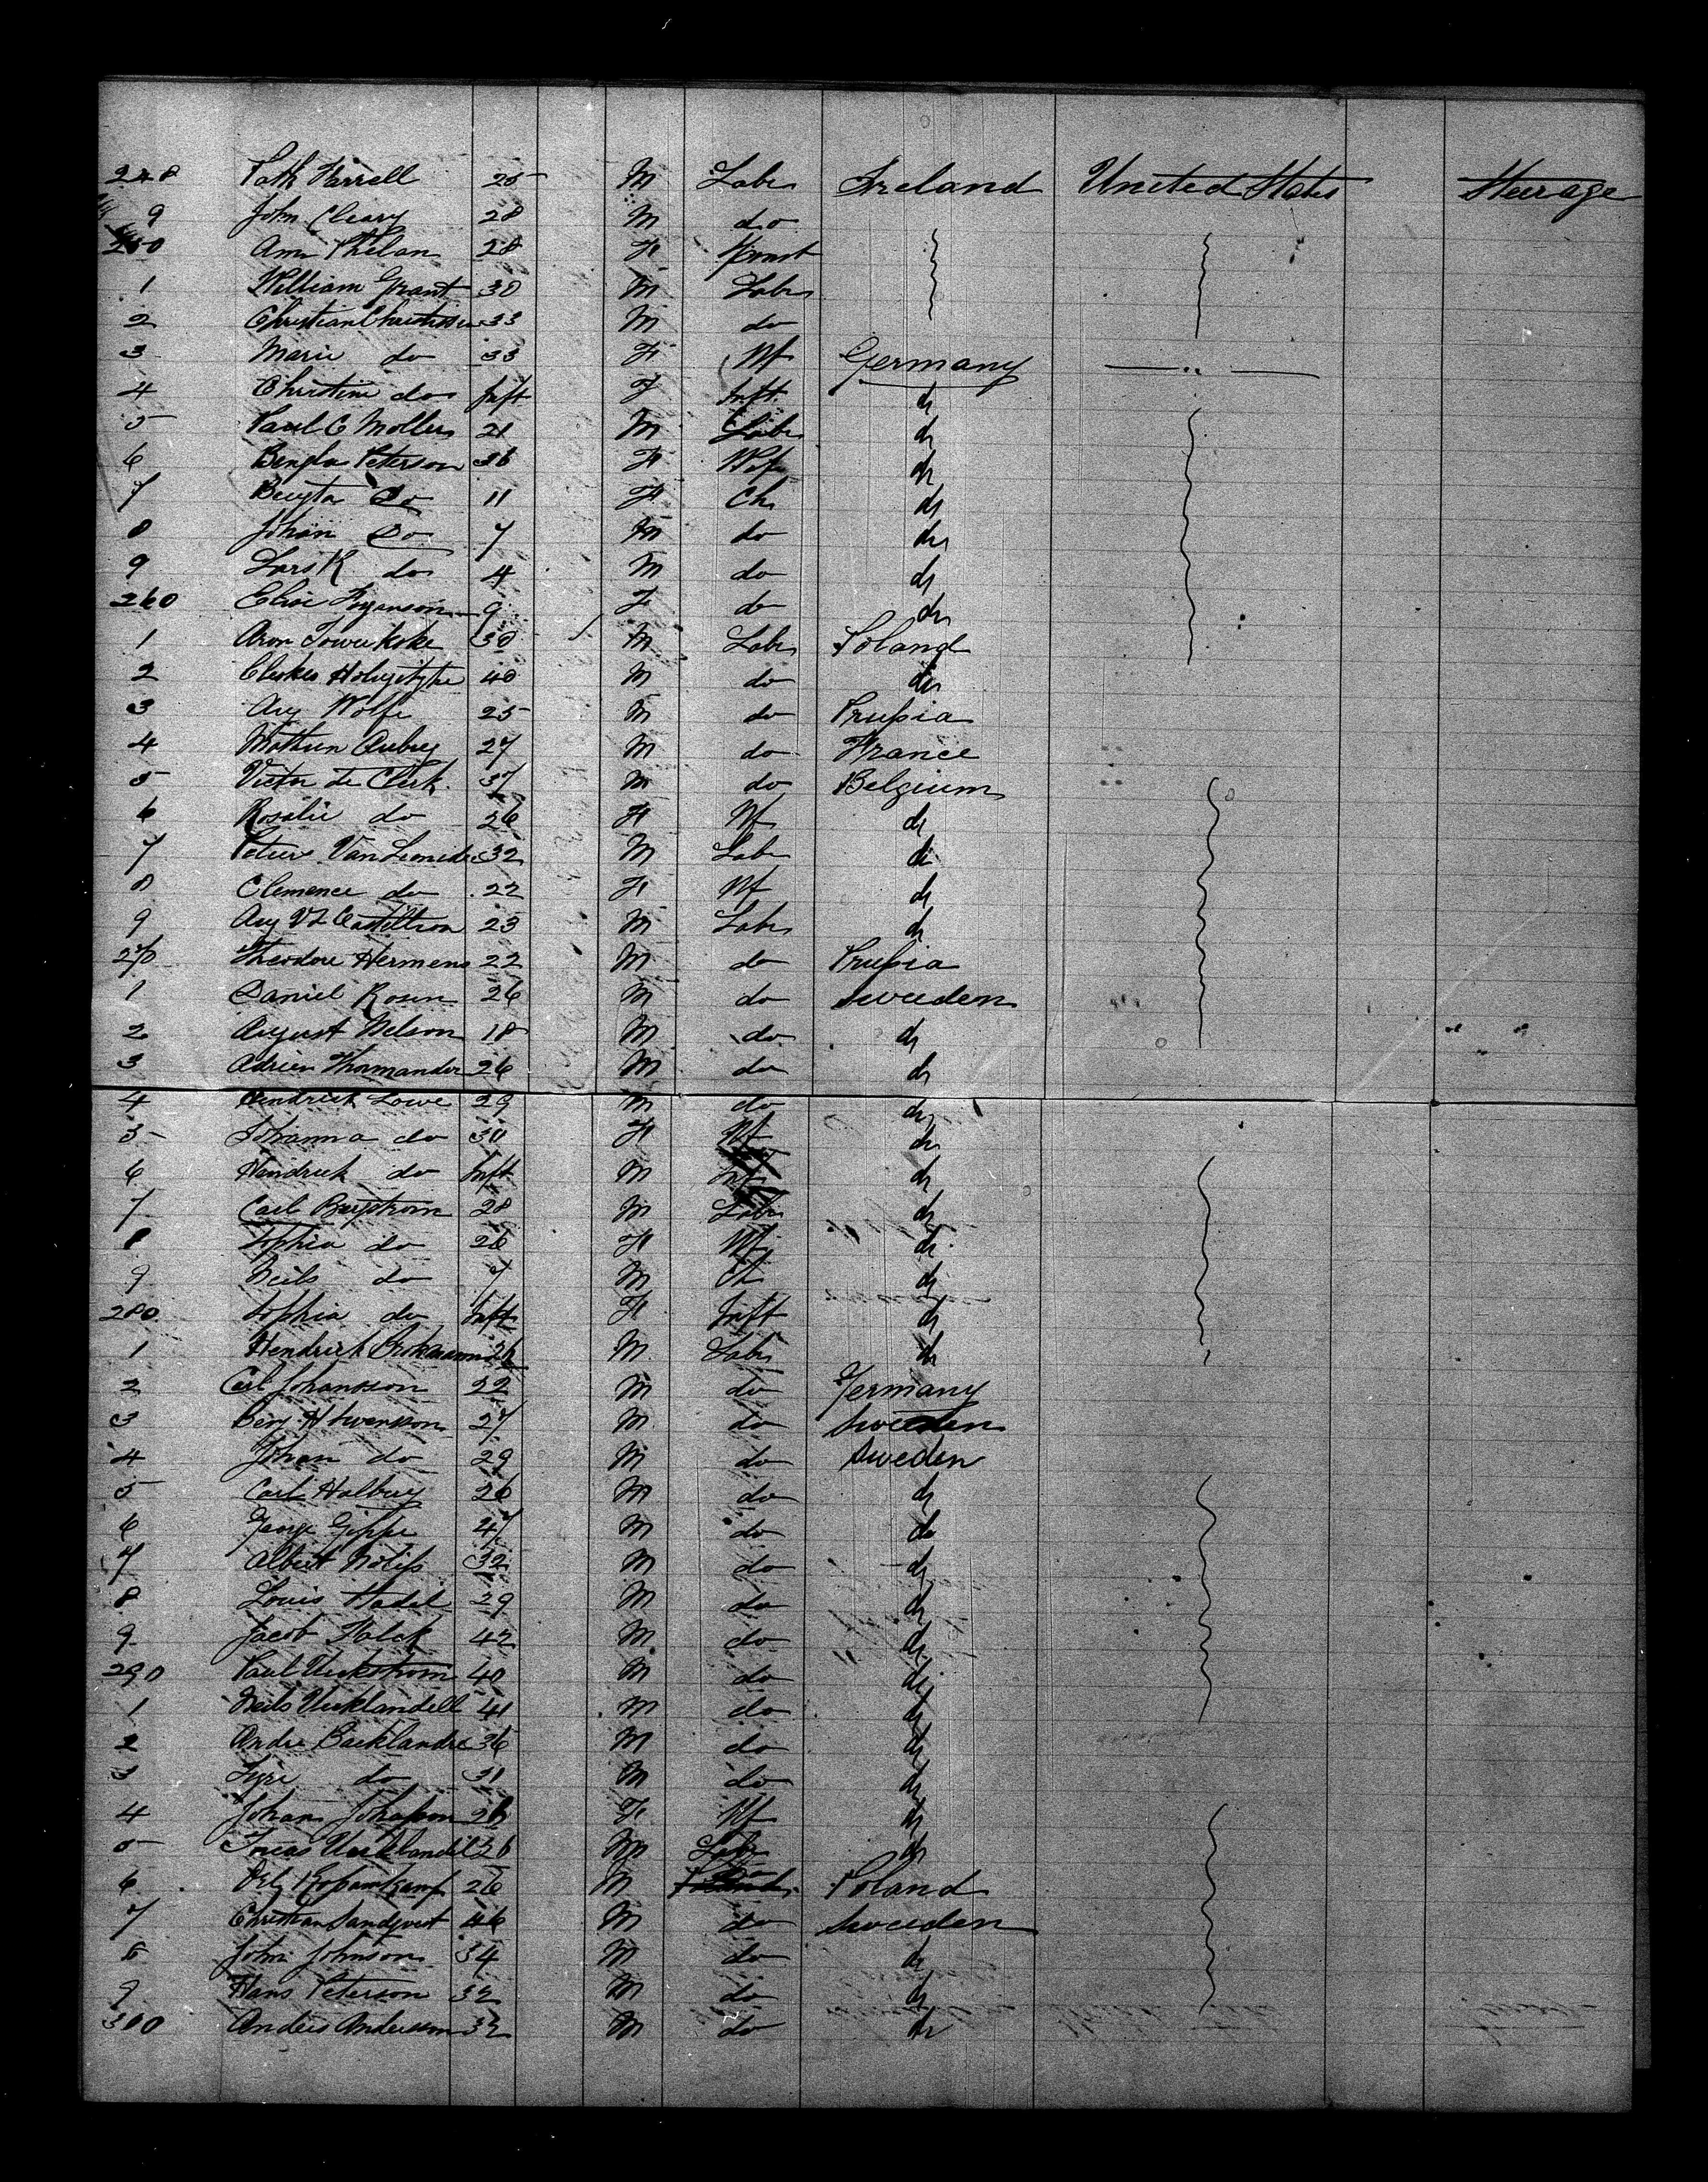 248 Path Farrell 25 M Labr Ireland United States Steerage
9 John Cleary 28 M do
250 Ann Phelan 28 F Spinst
1 William Grant 30 M Labr
2 Christian Christissen 33 M do
3 Marie do 33 F Wf Germany
4 Christine do Inft F Inft do
5 Paul C Moller 21 M Labr do
6 Bengta Peterson 36 F Wf do
7 Bengta Do 11 F Ch do
8 Johan Do 7 M do do
9 Lars K do 4 M do do
260 Elise 9 F do do
1 Aron 30 M Labr Poland
2 40 M do do
3 Aug Wolfe 25 M do Prussia
4 Mathien Aubrey 27 M do France
5 Victor De Clerk 37 M do Belgium
6 Rosalie do 26 F Wf do
7 Peters Van 32 M Labr do
8 Clemence do 22 F Wf do
9 Aug 23 M Labr do
270 Theodore Hermens 22 M do Prussia
1 Daniel Rosen 26 M do Sweden
2 August Nelson 18 M do do
3 Adrien Thormander 26 M do do
4 Hendrick Lowe 29 M do do
5 Johanna do 30 F Wf do
6 Hendrick do Inft M Inft do
7 Carl Bergstrom 28 M Labr do
8 Sophia do 26 F Wf do
9 Neils do 7 M Ch do
280 Sophia do Inft F Inft do
1 Hendrick 26 M Labr do
2 Carl Johansson 22 M do Germany
3 Benj H Swensson 27 M do Sweden
4 Johan do 29 M do Sweden
5 Carl Halbrey 26 M do do
6 George Gippe 47 M do do
7 Albert 32 M do do
8 Louis Hadel 29 M do do
9 Jacob Falck 42 M do do
290 Paul 40 M do do
1 Neils 41 M do do
2 Andre Backlandre 36 M do do
3 do 31 M do do
4 Johan Johasson 28 F Wf do
5 26 M Labr do
6 26 M Poland
7 Christian Sandqvist 46 M do Sweden
8 John Johnson 34 M do do
9 Hans Peterson 32 M do do
300 Anders Andersson 32 M do do